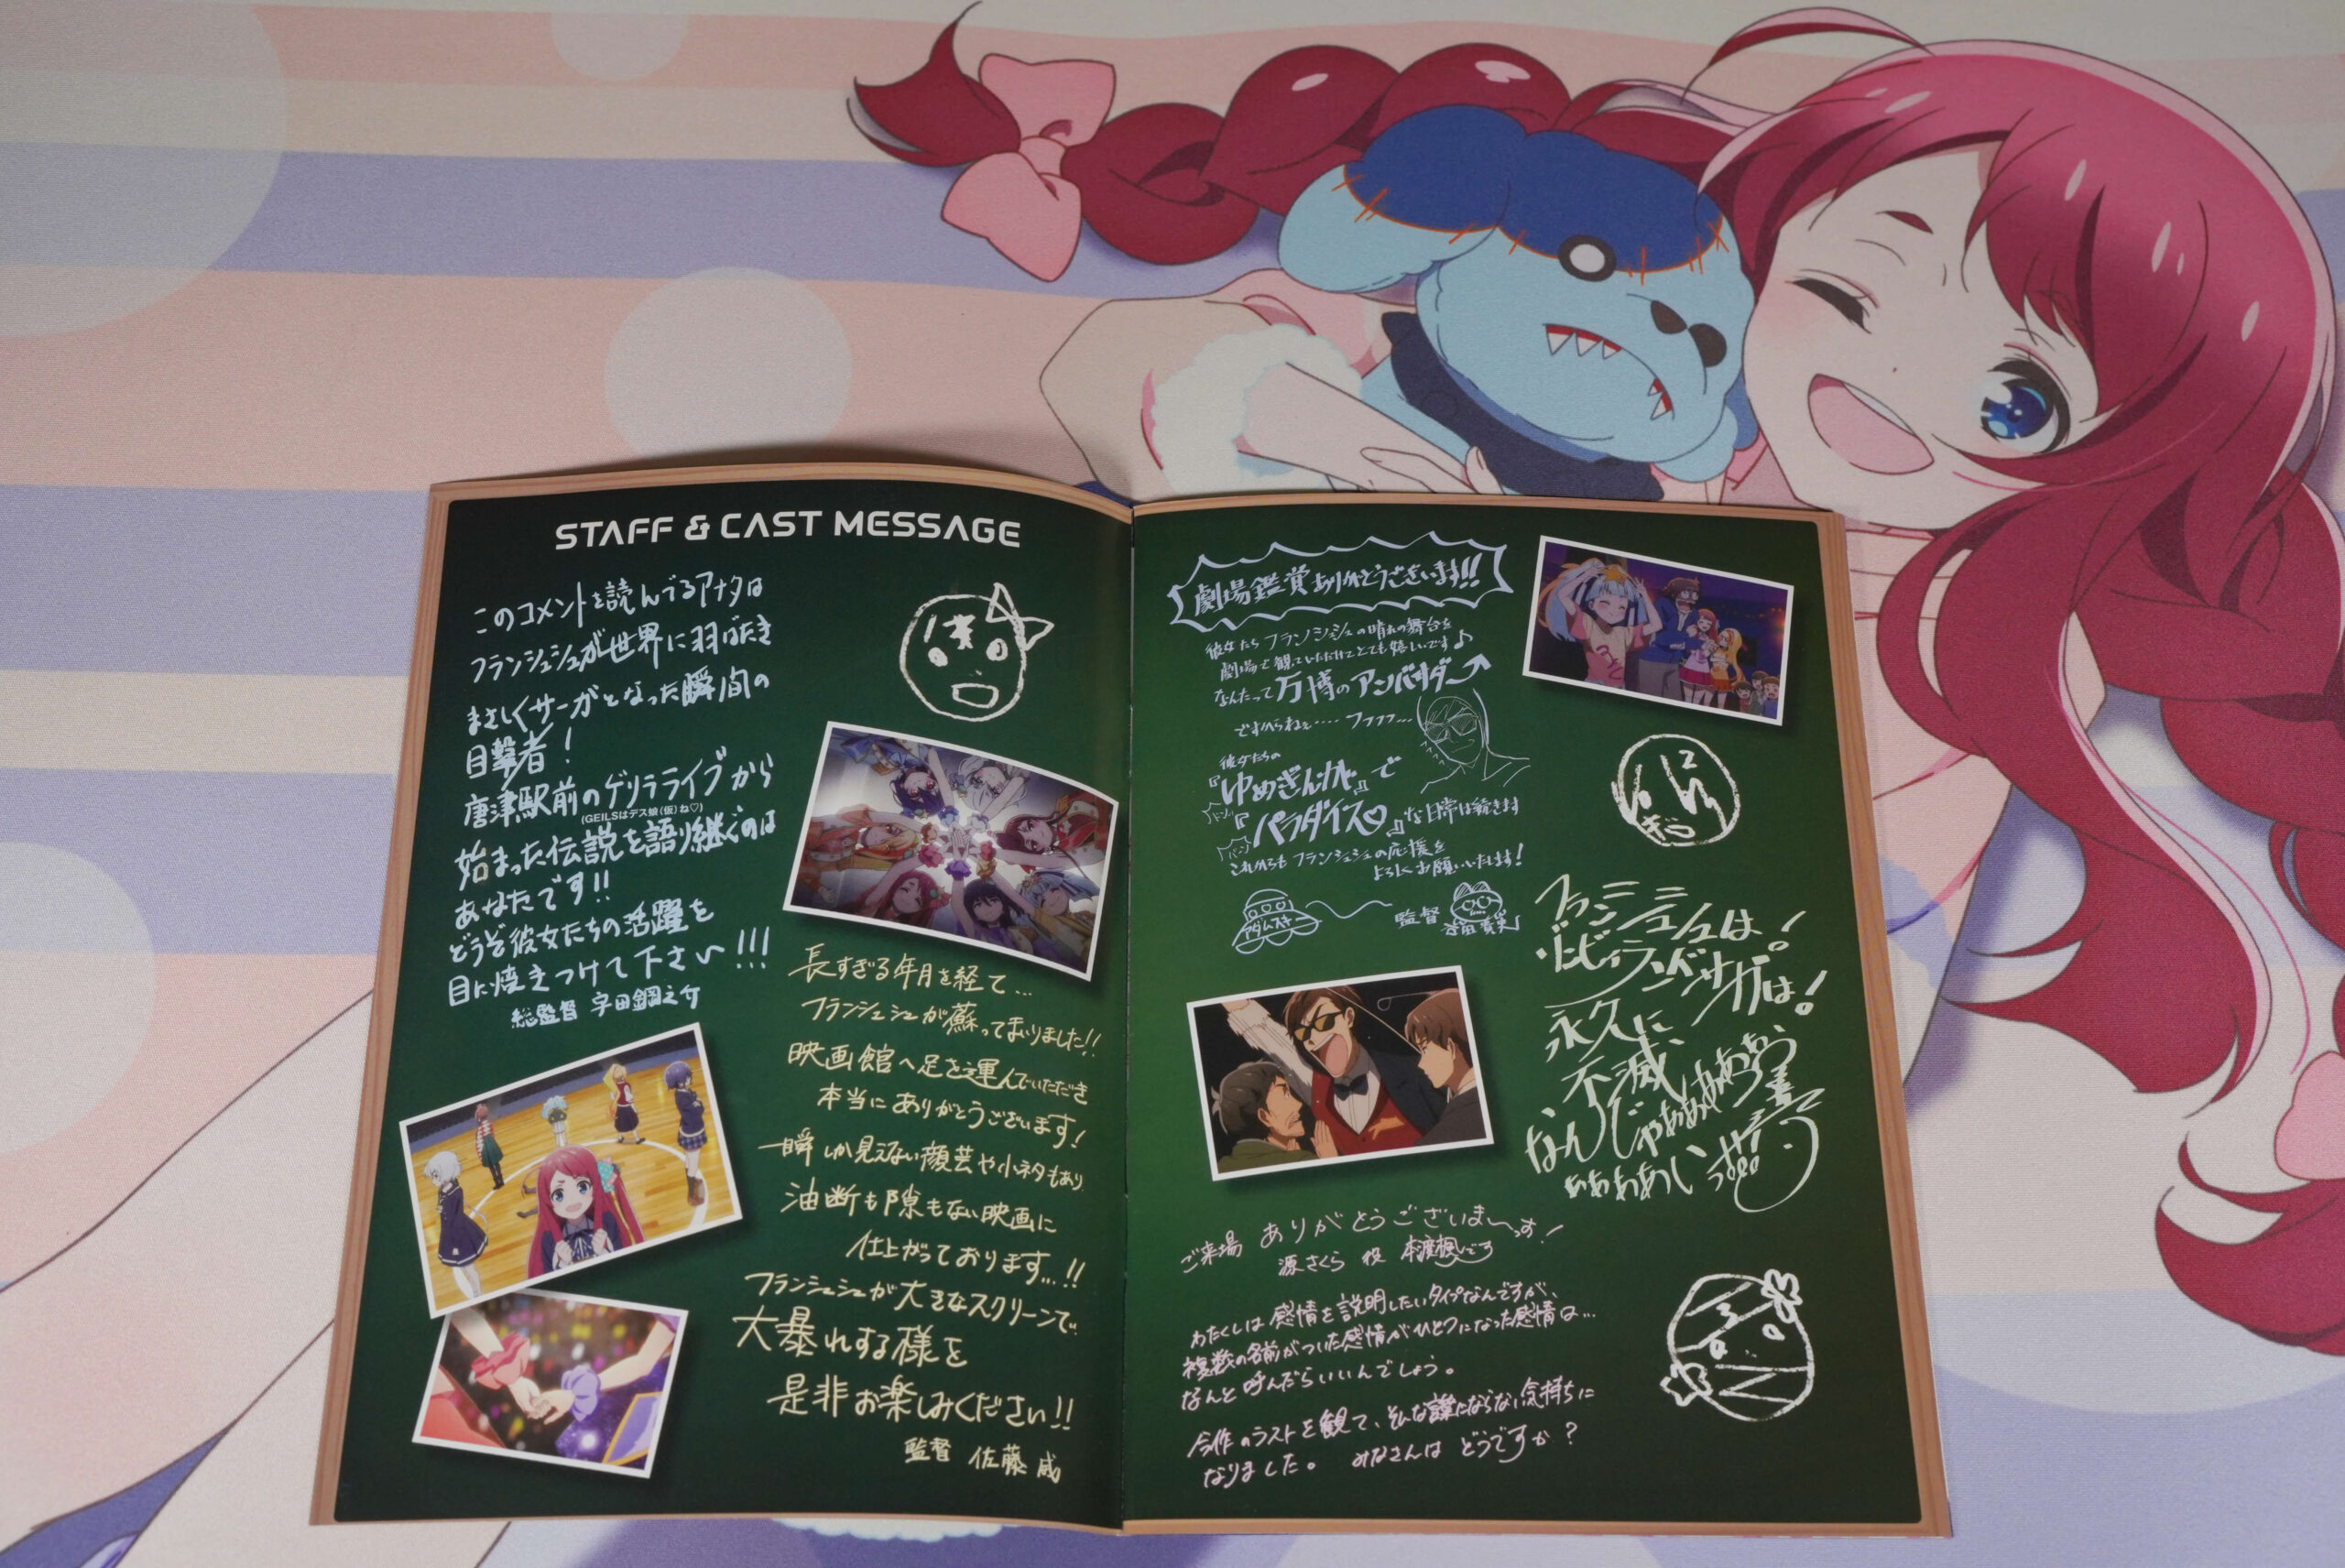 STAFF & CAST MESSAGE
このコメントを読んでるアナタは
フランシュシュが世界に羽ばたき
まさしくサーガとなった瞬間の
目撃者!
唐津駅前のゲリラライブから
(GEILSはデス娘(仮)ね♡)
始まった伝説を語り継ぐのは
あなたです!!
どうぞ彼女たちの活躍を
目に焼きつけて下さい!!!
総監督 宇田鋼之介
長すぎる年月を経て…
フランシュシュが蘇ってまいりました!!
映画館へ足を運んでいただき
本当にありがとうございます!
一瞬しか見えない顔芸や小ネタもあり
油断も隙もない映画に
仕上がっております…!!
フランシュシュが大きなスクリーンで
大暴れする様を
是非お楽しみください!!
監督 佐藤 威
劇場鑑賞ありがとうございます!!
彼女たちフランシュシュの晴れの舞台を
劇場で観ていただけてとても嬉しいです♪
なんたって万博のアンバサダー
ですからねぇ…‥ フフフフ…
彼女たちの
『ゆめぎんが』で
『パラダイス♡』な日常は続きます
これからもフランシュシュの応援を
よろしくお願いいたします!
アダムスキー
監督
フランシュシュは!
ゾンビランドサガは!
永久に
不滅
なんじゃああああ
ああああい
ご来場 ありがとうございまーっす!
源さくら 役 本渡楓です
わたくしは感情を説明したいタイプなんですが、
複数の名前がついた感情がひとつになった感情は…
なんと呼んだらいいんでしょう。
今作のラストを観て、そんな言葉にならない気持ちに
なりました。 みなさんは どうですか?